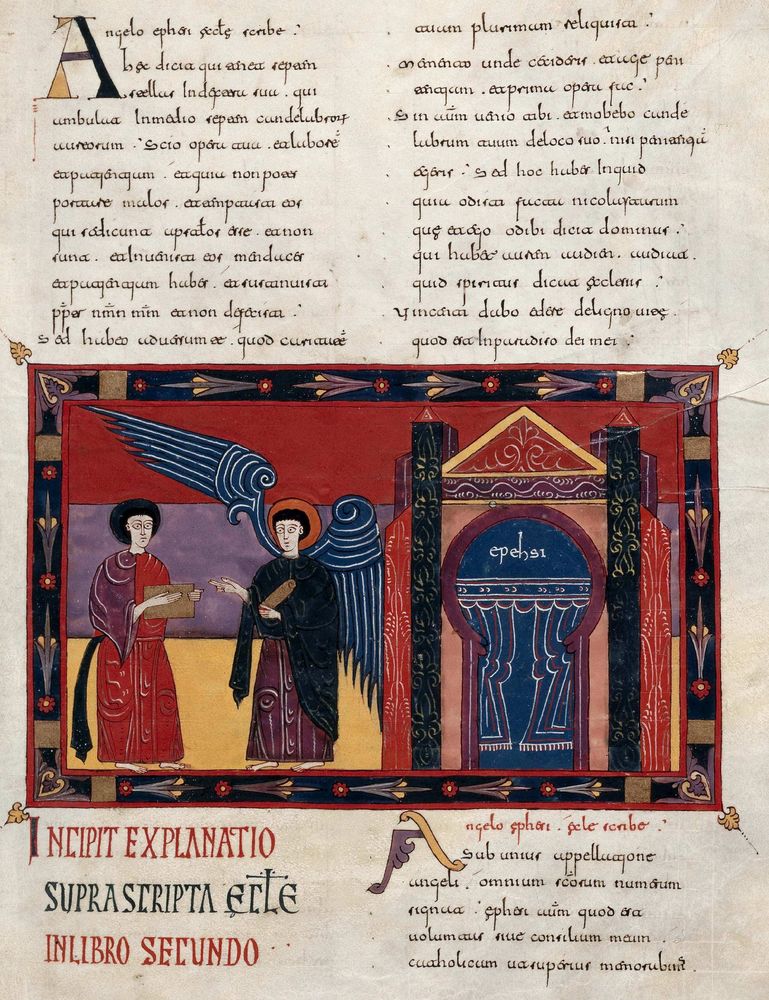 Angelo ephesi eccl̄e scribe :
Hec dicit qui tenet septem
stellas In dextera sua . qui
ambulat In medio septem candelabrorum
aureorum : Scio opera tua . et laborē
et patientiam . et quia non potes
portare malos . et temptasti eos
qui se dicunt apostolos esse . et non
sunt . et Inuenisti eos mendaces
et patientiam habes . et sustinuisti
pp̄ter nm̄n mm̄ et non defecisti .
Sed habeo aduersum te . quod caritatē
tuam plurimam reliquisti .
Memento unde cecideris . et age pen
itentiam . et prima opera fac :
Sin aūm uenio tibi . et mobebo cande
labrum tuum de loco suo . nisi penitentiā
egeris : Sed hoc habes Inquid
quia odisti facta nicolaitarum
que et ego odibi dicit dominus :
qui habet aurem audien . audiat .
quid spiritus dicat eclesiis :
Vincenti dabo edere de ligno uite .
quod est In paradiso dei mei :
epehsi
INCIPIT EXPLANATIO
SUPRASCRIPTA ECL̄E
IN LIBRO SECUNDO
Angelo ephesi . ecl̄e scribe :
Sub unius appellatione
angeli . omnium sc̄orum numerum
signat : ephesi aūm quod est
uoluntas siue consilium meum .
catholicum ut superius